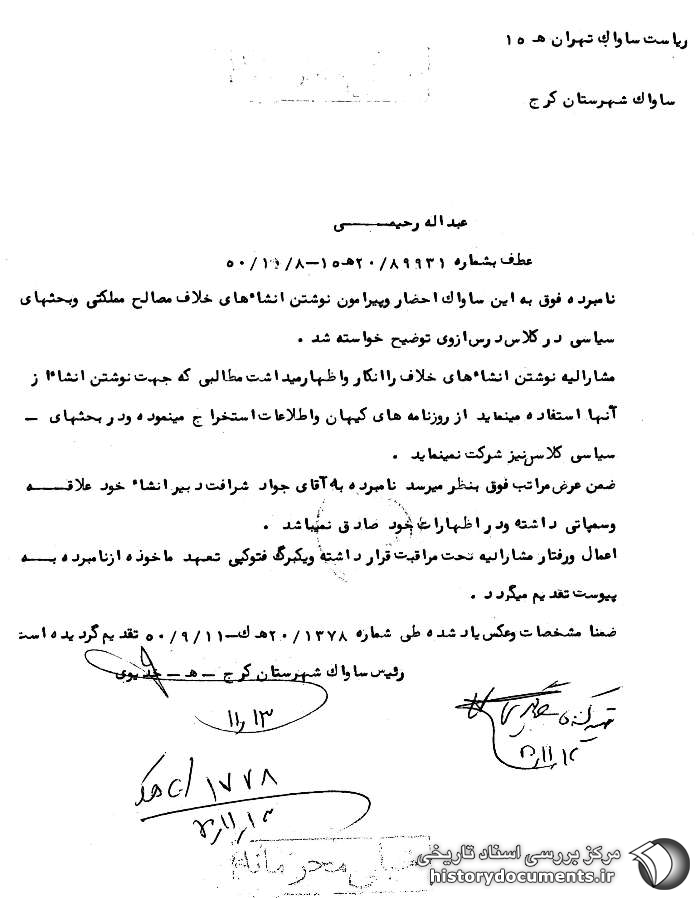 ریاست ساواک تهران هـ ۱۵
ساواک شهرستان کرج
عبداله رحیمـــــی
عطف بشماره ۲۰/۸۹۹۳۱هـ۱۵-۵۰/۱۱/۸
نامبرده فوق به این ساواک احضار وپیرامون نوشتن انشاءهای خلاف مصالح مملکتی وبحثهای
سیاسی در کلاس درس ازوی توضیح خواسته شد .
مشارالیه نوشتن انشاءهای خلاف راانکار واظهارمیداشت مطالبی که جهت نوشتن انشاء از
آنها استفاده مینماید از روزنامه های کیهان واطلاعات استخراج مینموده ودر بحثهای –
سیاسی کلاس نیز شرکت نمینماید .
ضمن عرض مراتب فوق بنظر میرسد نامبرده به آقای جواد شرافت دبیر انشاء خود علاقـــه
وسمپاتی داشته ودر اظهارات خود صادق نمیباشد .
اعمال ورفتار مشارالیه تحت مراقبت قرار داشته ویکبرگ فتوکپی تعهد ماخوذه ازنامبرده بـــه
پیوست تقدیم میگردد .
ضمنا مشخصات وعکس یاد شده طی شماره ۲۰/۱۳۷۸هـ ک-۵۰/۹/۱۱ تقدیم گردیده است
رئیس ساواک شهرستان کرج – هـ – خدیوی
۱۱/۱۳
۱۷۷۸
خیلی محرمانه
مرکز بررسی اسناد تاریخی
historydocuments.ir